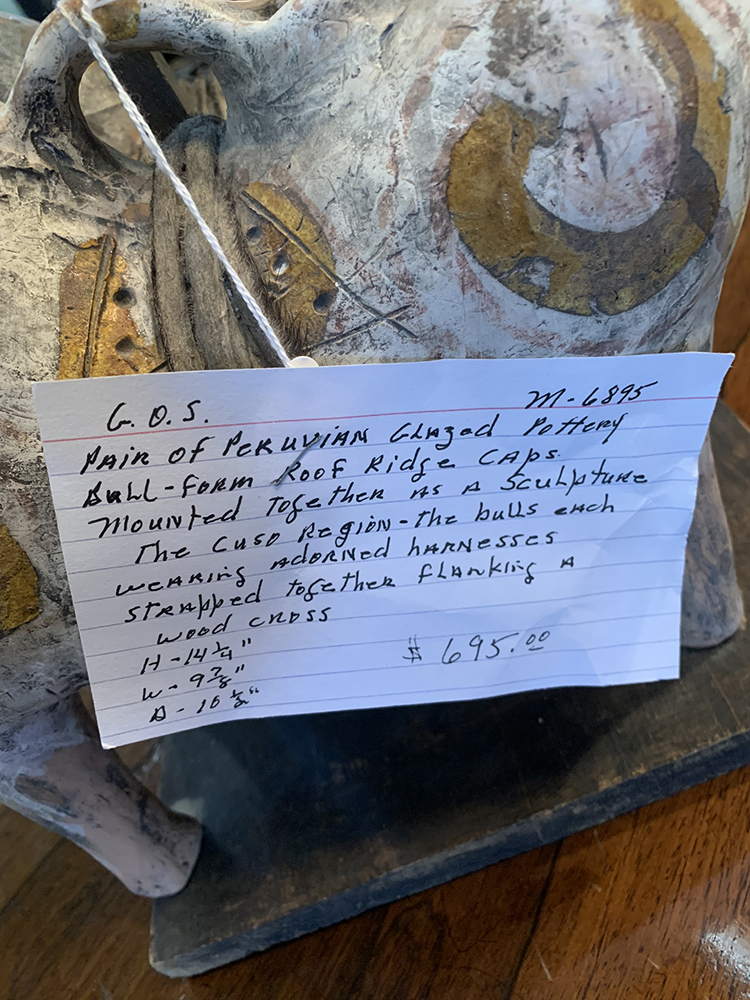 G.O.S. M-6895
PAIR OF PERUVIAN GLAZED POTTERY
BULL-FORM ROOF RIDGE CAPS
MOUNTED TOGETHER AS A SCULPTURE
THE CUSO REGION-THE BULLS EACH
WEARING ADORNED HARNESSES
STRAPPED TOGETHER FLANKING A
WOOD CROSS
H-14 1/4"
W-9 7/8" $695.00
D-10 1/2"